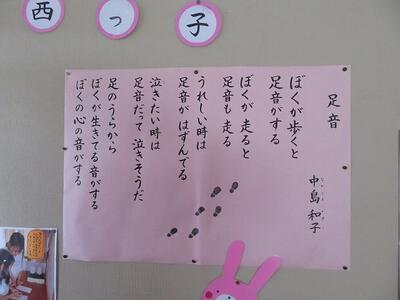 西っ子
足音
中島和子
ぼくが歩くと
足音がする
ぼくが走ると
足音も走る
うれしい時は
足音がはずんでる
泣きたい時は
足音だって泣きそうだ
足のうらから
ぼくが生きてる音がする
ぼくの心の音がする